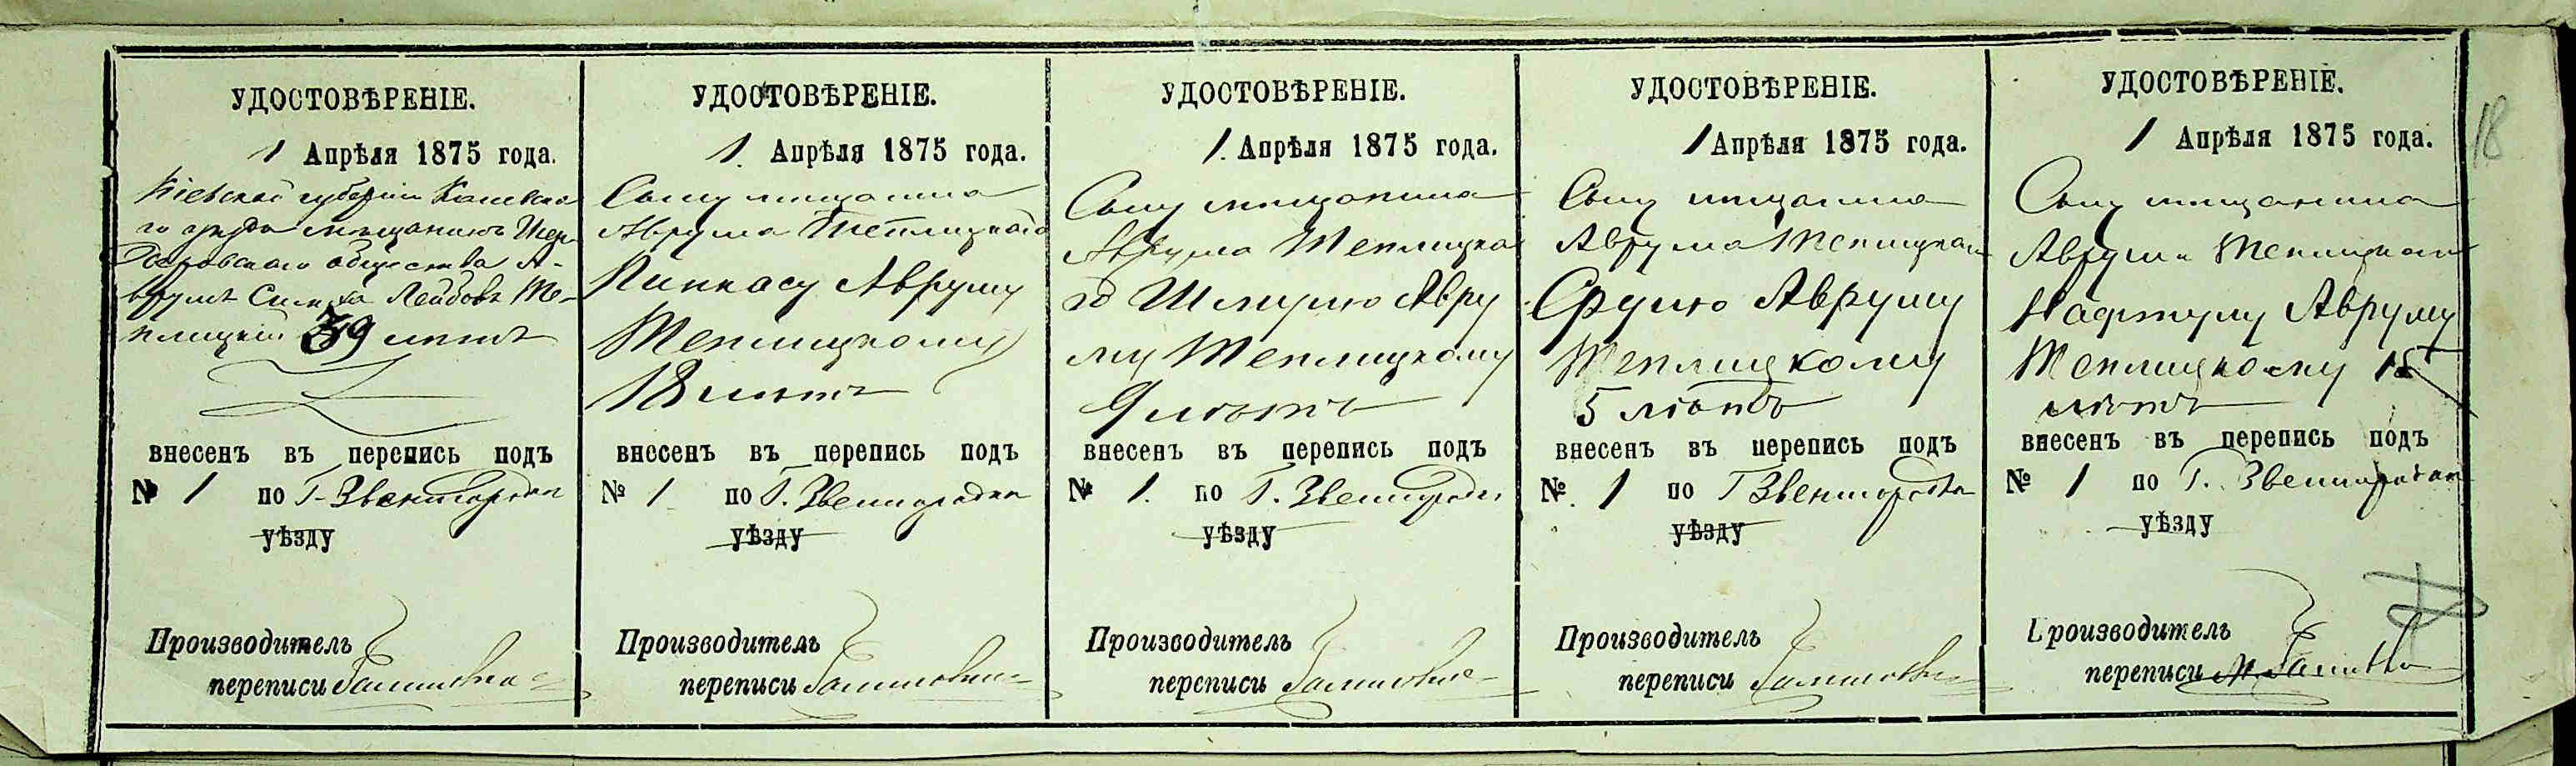 УДОСТОВѢРЕНІЕ.
1 Апрѣля 1875 года.
Кіевской губерніи Каневска
го уѣзда мѣщанинъ
общества А-
врумъ Лейбовъ Те-
плицкій 39 лѣтъ
внесенъ въ перепись подъ
№ 1 по Г. Звенигородкѣ
уѣзду
Производитель
переписи
УДОСТОВѢРЕНІЕ.
1. Апрѣля 1875 года.
Сыну мѣщанина
Аврума Теплицкаго
Пинкасу Авруму
Теплицкому
18 лѣтъ
внесенъ въ перепись подъ
№ 1 по Г. Звенигородкѣ
уѣзду
Производитель
переписи
УДОСТОВѢРЕНІЕ.
1. Апрѣля 1875 года.
Сыну мѣщанина
Аврума Теплицка
го Шмулю Авру
му Теплицкому
9 лѣтъ
внесенъ въ перепись подъ
№ 1. по Г. Звенигородкѣ
уѣзду
Производитель
переписи
УДОСТОВѢРЕНІЕ.
1 Апрѣля 1875 года.
Сыну мѣщанина
Аврума Теплицкаго
Срулю Авруму
Теплицкому
5 лѣтъ
внесенъ въ перепись подъ
№ 1 по Г Звенигородкѣ
уѣзду
Производитель
переписи
УДОСТОВѢРЕНІЕ.
1 Апрѣля 1875 года.
Сыну мѣщанина
Аврума Теплицкаго
Нафтулу Авруму
Теплицкому 15
лѣтъ
внесенъ въ перепись подъ
№ 1 по Г. Звенигородкѣ
уѣзду
Производитель
переписи
18